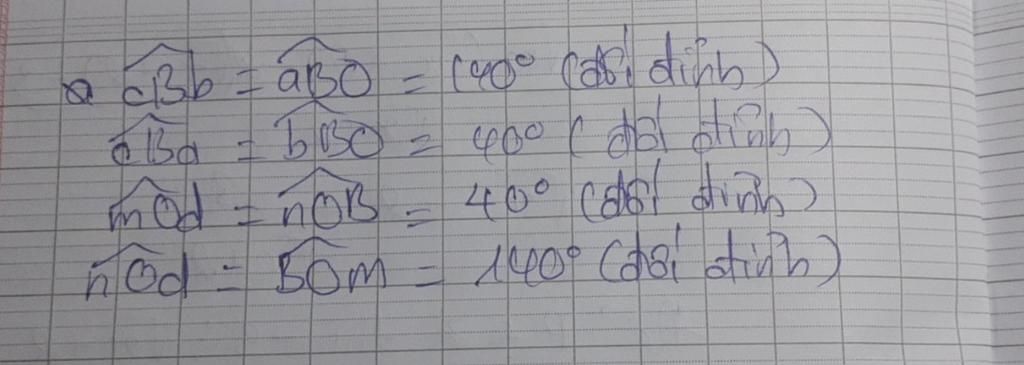 a cBb = aBO = 140° (đối đỉnh)
cBa = bBO = 40° (đối đỉnh)
mOd = nOB = 40° (đối đỉnh)
nOd = BOm = 140° (đối đỉnh)